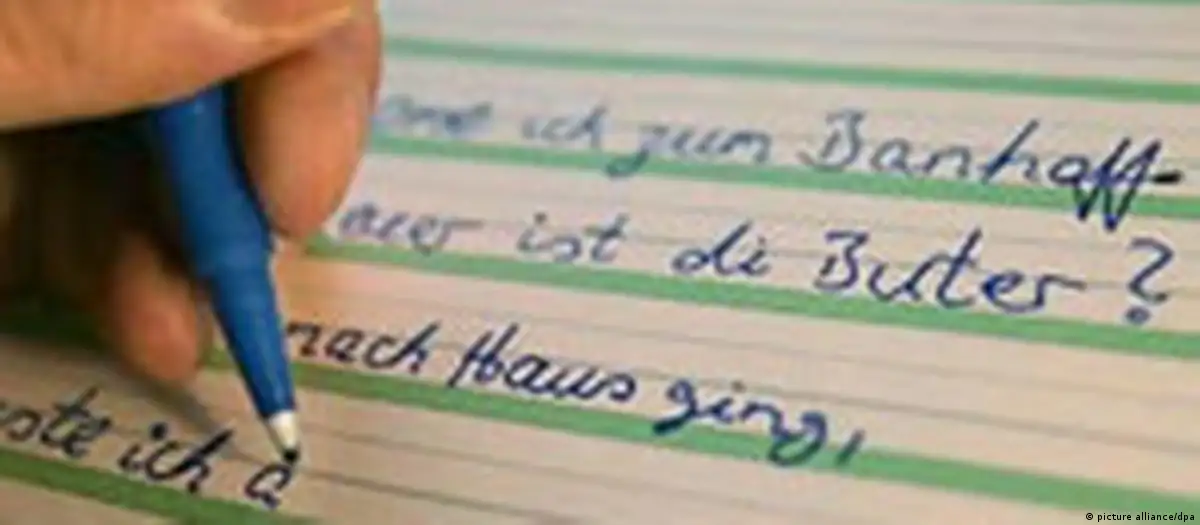 ich zum Banhoff-
ist di Buter?
nach Haus ging,
ich a
© picture alliance/dpa